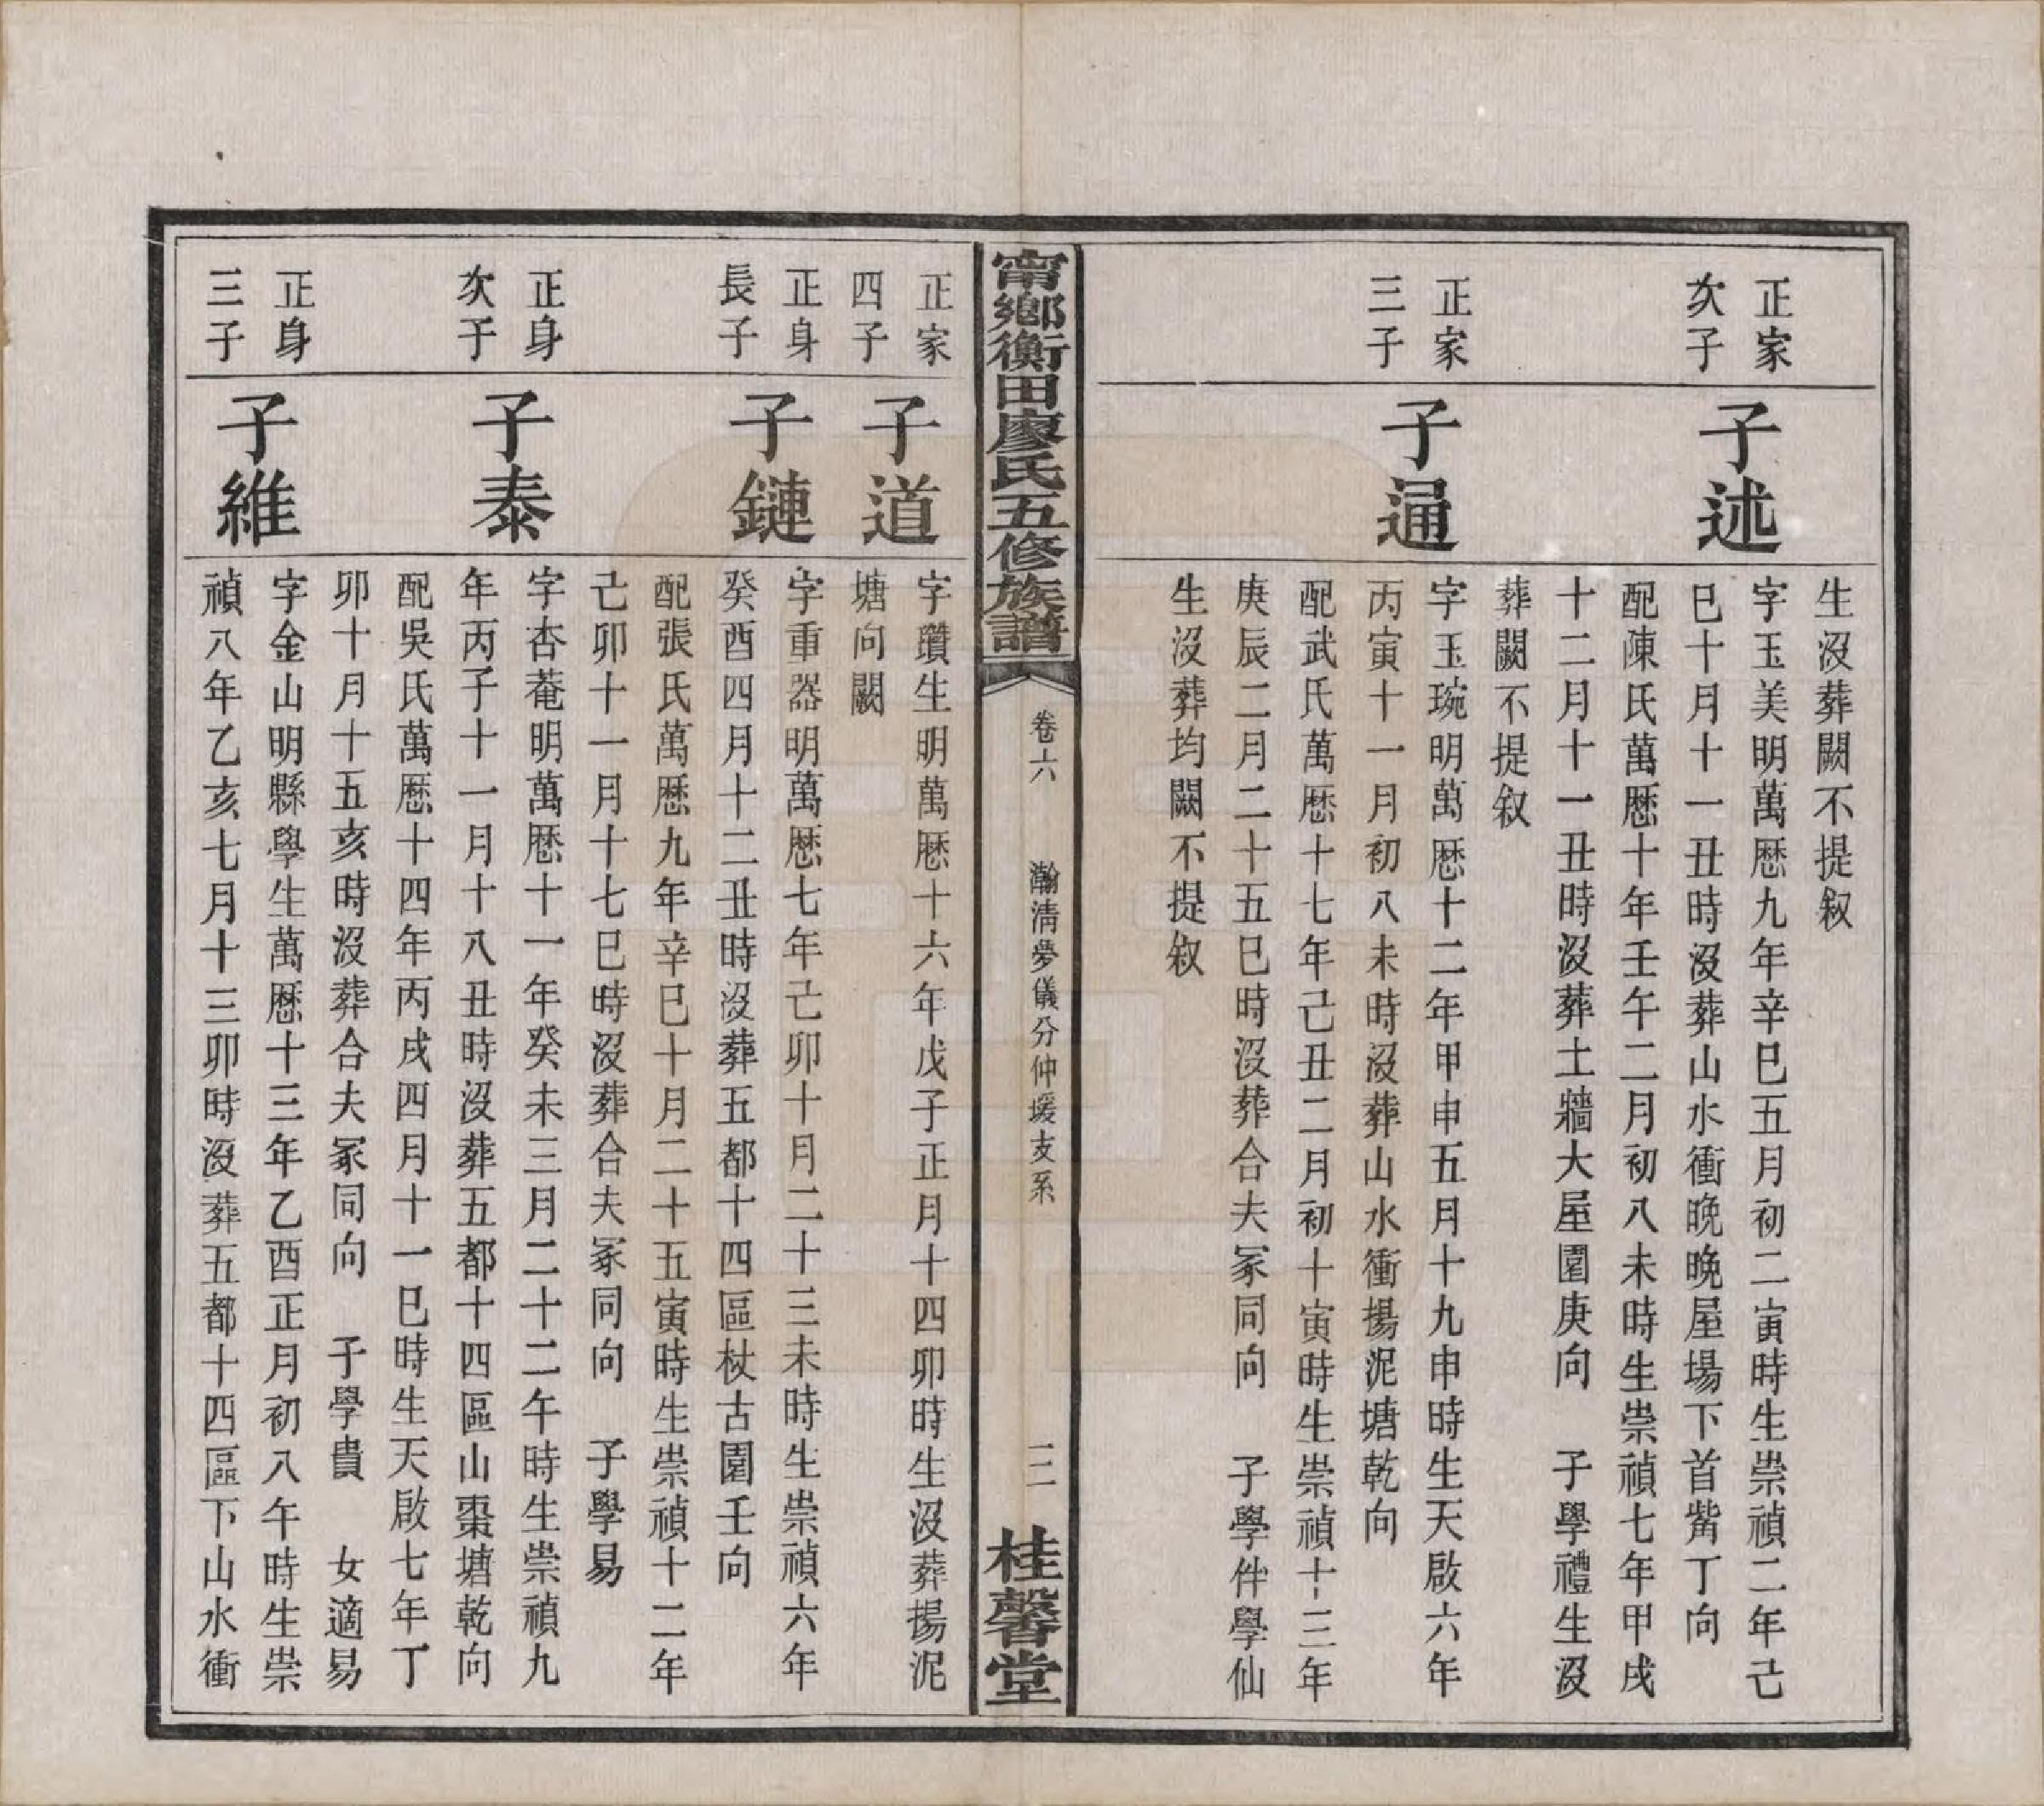 生沒葬闕不提敘
正家
次子
子述
字玉美明萬厯九年辛巳五月初二寅時生崇禎二年己
巳十月十一丑時沒葬山水衝晚晚屋場下首觜丁向
配陳氏萬厯十年壬午二月初八未時生崇禎七年甲戌
十二月十一丑時沒葬土牆大屋園庚向　子學禮生沒
葬闕不提敘
正家
三子
子通
字玉琬明萬厯十二年甲申五月十九申時生天啟六年
丙寅十一月初八未時沒葬山水衝揚泥塘乾向
配武氏萬厯十七年己丑二月初十寅時生崇禎十三年
庚辰二月二十五巳時沒葬合夫冢同向　子學件學仙
生沒葬均闕不提敘
甯鄉衡田廖氏五修族譜
卷六
瀚清夢儀分仲堫支系
二
桂馨堂
正家
四子
子道
字瓚生明萬厯十六年戊子正月十四卯時生沒葬揚泥
塘向闕
正身
長子
子鏈
字重器明萬厯七年己卯十月二十三未時生崇禎六年
癸酉四月十二丑時沒葬五都十四區杖古園壬向
配張氏萬厯九年辛巳十月二十五寅時生崇禎十二年
己卯十一月十七巳時沒葬合夫冢同向　子學易
正身
次子
子泰
字杏菴明萬厯十一年癸未三月二十二午時生崇禎九
年丙子十一月十八丑時沒葬五都十四區山棗塘乾向
配吳氏萬厯十四年丙戌四月十一巳時生天啟七年丁
卯十月十五亥時沒葬合夫冢同向　子學貴　女適易
正身
三子
子維
字金山明縣學生萬厯十三年乙酉正月初八午時生崇
禎八年乙亥七月十三卯時沒葬五都十四區下山水衝